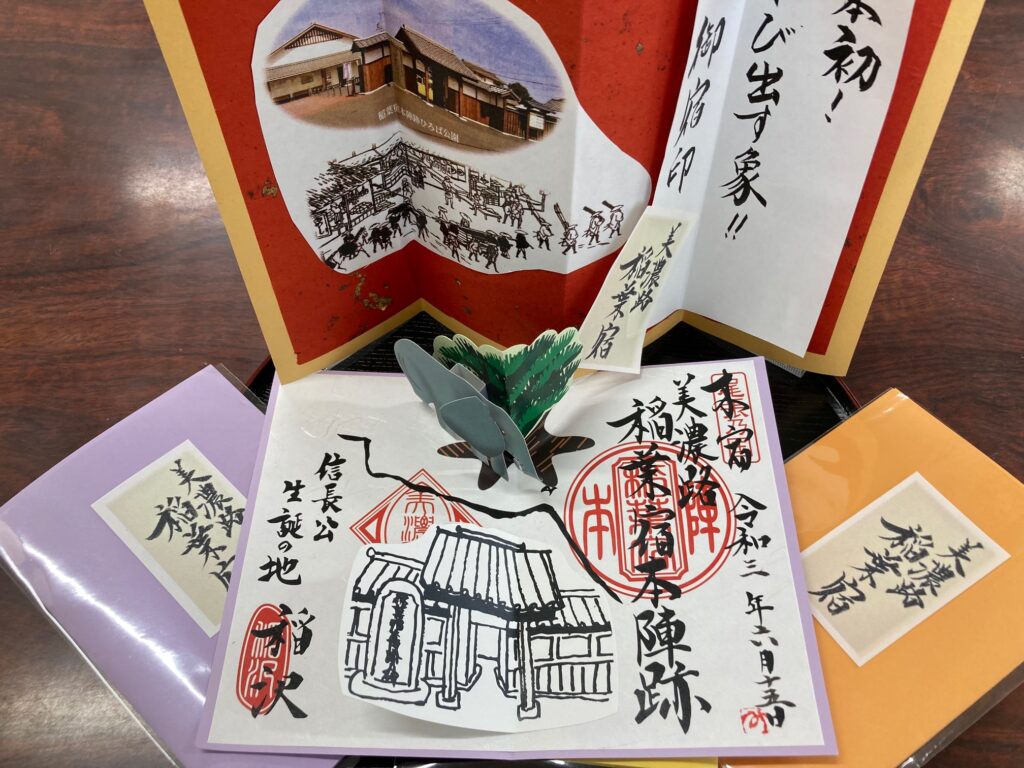 本初!
び出す象!!
御宿印
稲葉宿本陣跡ひろば公園
美濃路
稲葉宿
来宿
美濃路
稲葉宿本陣跡
令和三年六月十五日
本
陣
美濃
信長公
生誕の地
稲沢
美濃路
稲葉
美濃路
稲葉宿